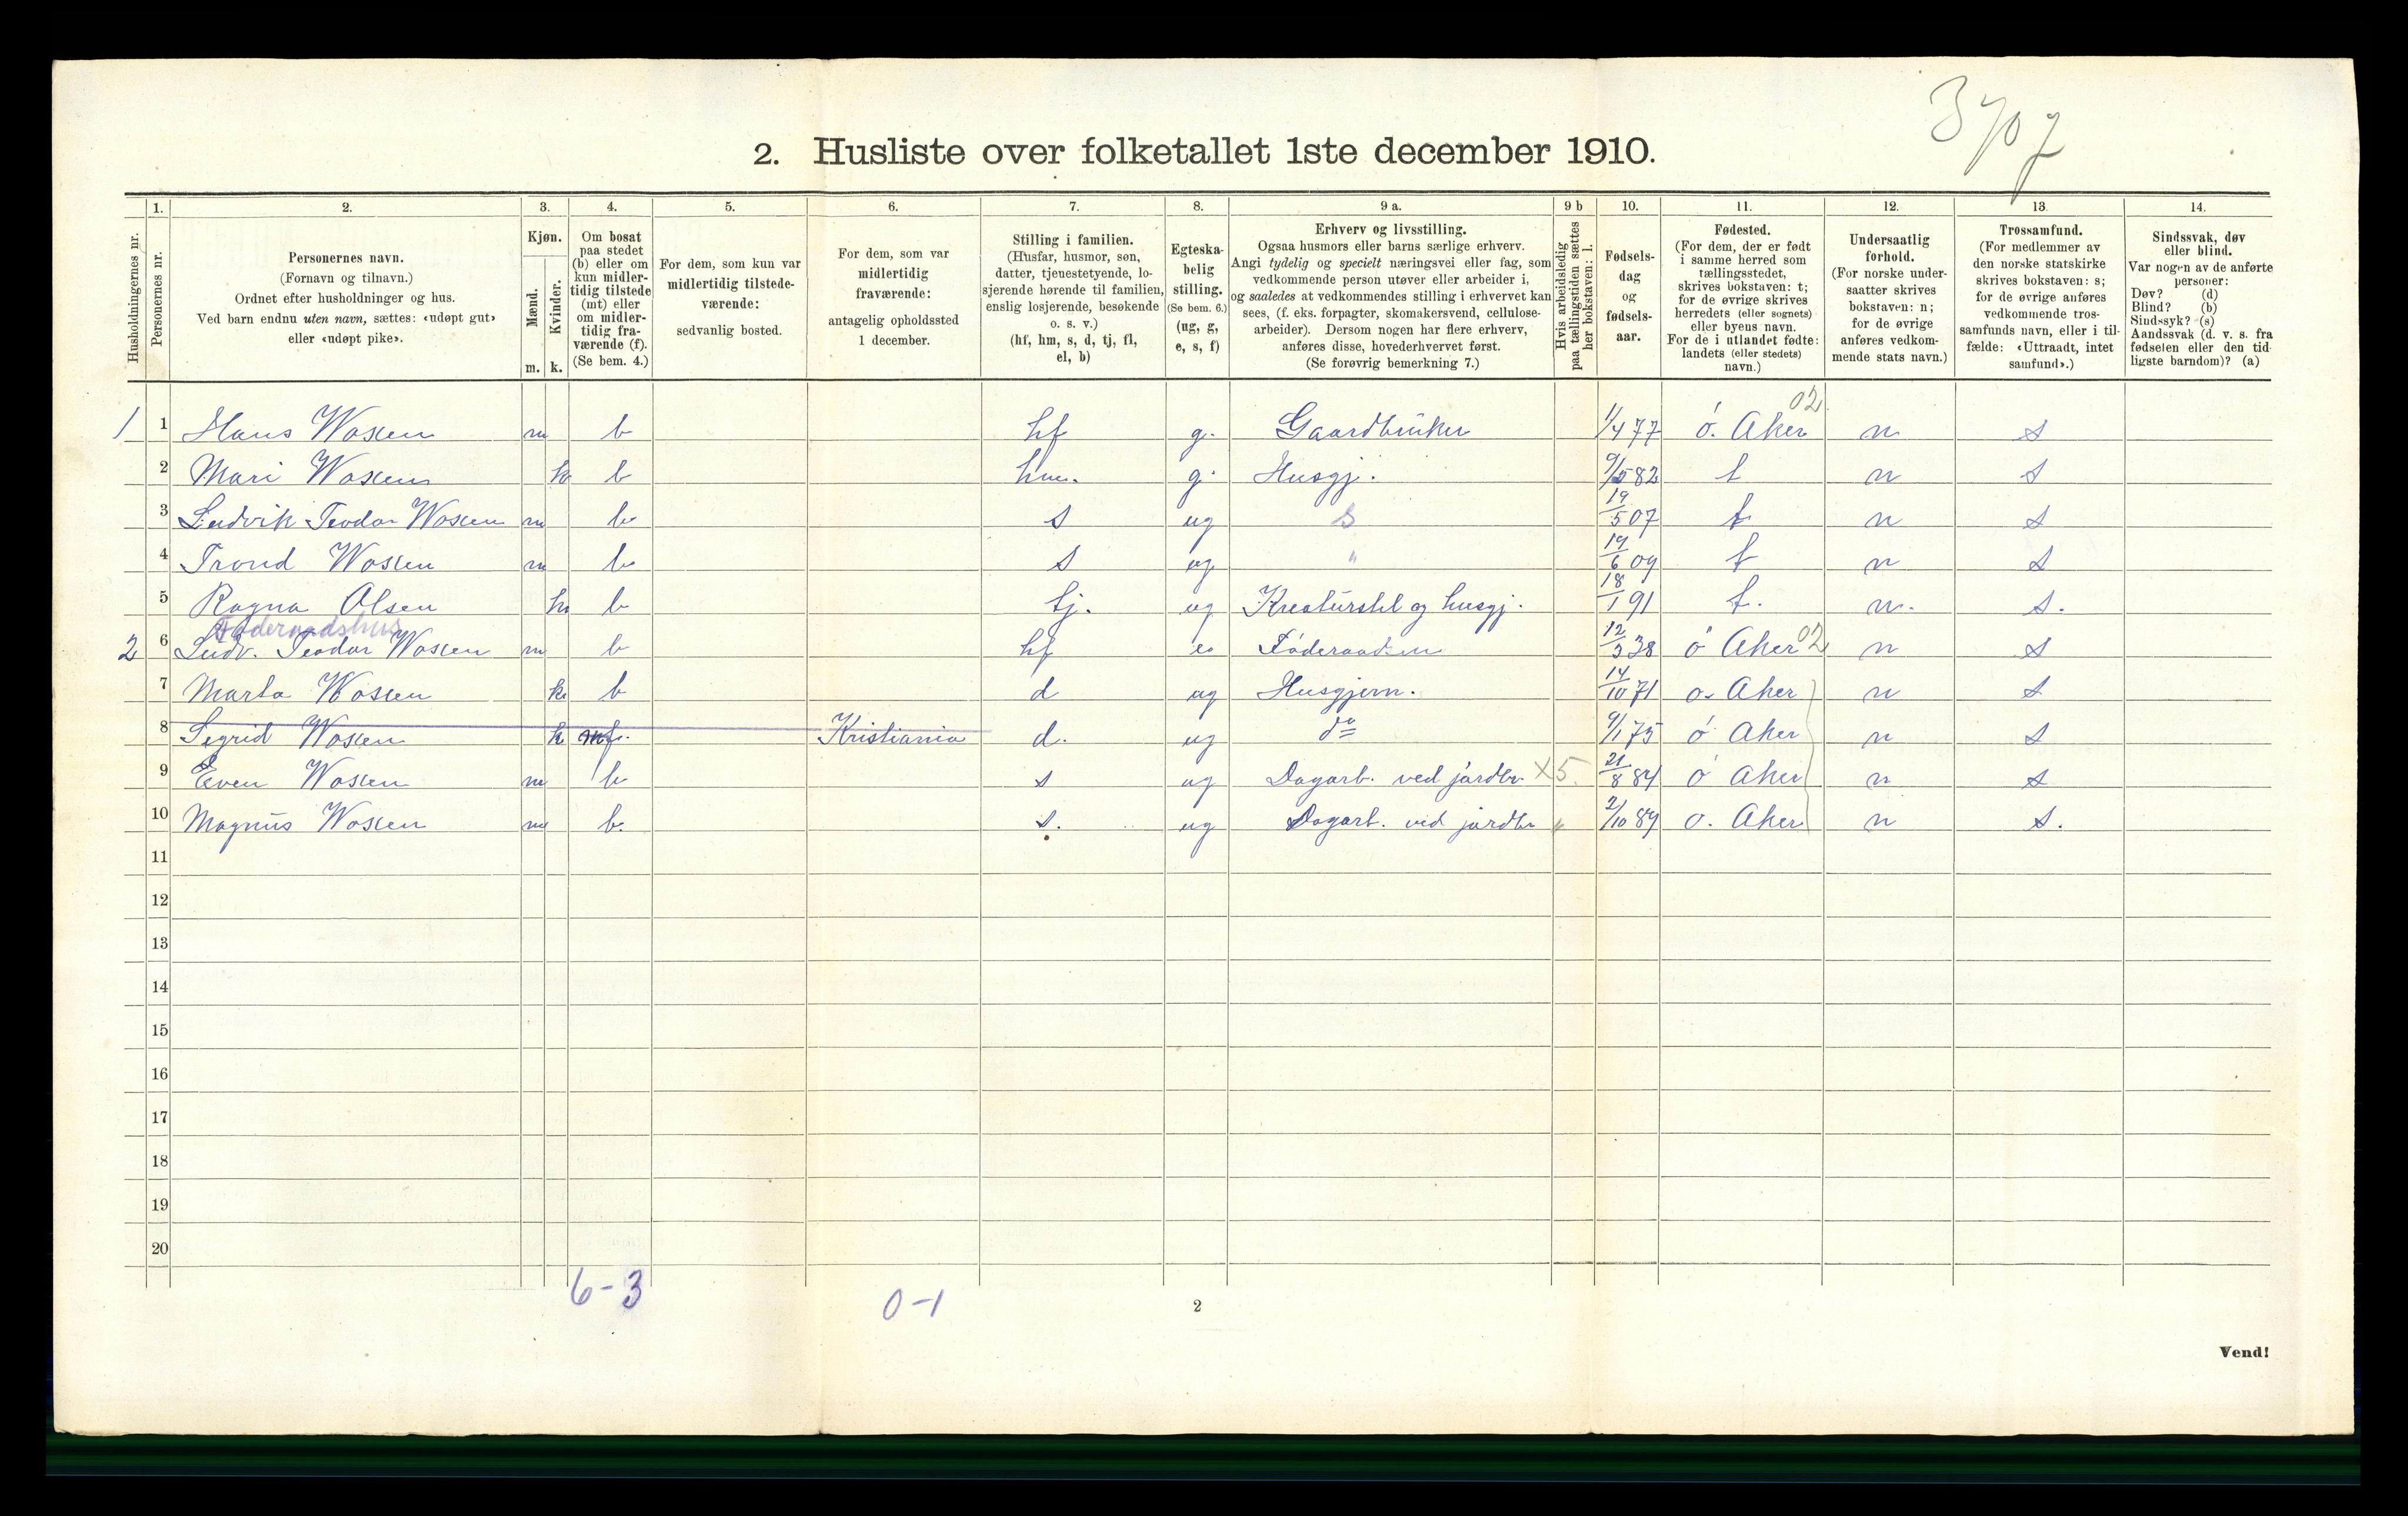 3707
2. Husliste over folketallet 1ste december 1910.
Husholdningernes nr.
1.
Personernes nr.
2.
Personernes navn.
(Fornavn og tilnavn.)
Ordnet efter husholdninger og hus.
Ved barn endnu uten navn, sættes: «udøpt gut»
eller «udøpt pike».
3.
Kjøn.
Mænd.
Kvinder.
m. k.
4.
Om bosat
paa stedet
(b) eller om
kun midler-
tidig tilstede
(mt) eller
om midler-
tidig fra-
værende (f).
(Se bem. 4.)
5.
For dem, som kun var
midlertidig tilstede-
værende:
sedvanlig bosted.
6.
For dem, som var
midlertidig
fraværende:
antagelig opholdssted
1 december.
7.
Stilling i familien.
(Husfar, husmor, søn,
datter, tjenestetyende, lo-
sjerende hørende til familien,
enslig losjerende, besøkende
o. s. v.)
(hf, hm, s, d, tj, fl,
el, b)
8.
Egteska-
belig
stilling.
(Se bem. 6.)
(ug, g,
e, s, f)
9 a.
Erhverv og livsstilling.
Ogsaa husmors eller barns særlige erhverv.
Angi tydelig og specielt næringsvei eller fag, som
vedkommende person utøver eller arbeider i,
og saaledes at vedkommendes stilling i erhvervet kan
sees, (f. eks. forpagter, skomakersvend, cellulose-
arbeider). Dersom nogen har flere erhverv,
anføres disse, hovederhvervet først.
(Se forøvrig bemerkning 7.)
9 b
Hvis arbeidsledig
paa tællingstiden sættes
her bokstaven: l.
10.
Fødsels-
dag
og
fødsels-
aar.
11.
Fødested.
(For dem, der er født
i samme herred som
tællingsstedet,
skrives bokstaven: t;
for de øvrige skrives
herredets (eller sognets)
eller byens navn.
For de i utlandet fødte:
landets (eller stedets)
navn.)
12.
Undersaatlig
forhold.
(For norske under-
saatter skrives
bokstaven: n;
for de øvrige
anføres vedkom-
mende stats navn.)
13.
Trossamfund.
(For medlemmer av
den norske statskirke
skrives bokstaven: s;
for de øvrige anføres
vedkommende tros-
samfunds navn, eller i til-
fælde: «Uttraadt, intet
samfund».)
14.
Sindssvak, døv
eller blind.
Var nogen av de anførte
personer:
Døv? (d)
Blind? (b)
Sindssyk? (s)
Aandssvak (d. v. s. fra
fødselen eller den tid-
ligste barndom)? (a)
02
1 1 Hans Wossen m b hf g. Gaardbruker 1/4 77 ö. Aker n s
2 Mari Wossen k b hm. g. Husgj. 9/5 82 t n s
3 Ludvik Teodor Wossen m b s ug s 19/5 07 t n s
4 Trond Wossen m b s ug " 19/6 09 t n s
5 Ragna Olsen k b tj. ug Kreaturstel og husgj. 18/1 91 t. n. s.
Föderaadshus
2 6 Ludv. Teodor Wossen m b hf e Föderaadsm 12/3 38 ö Aker 02 n s
7 Marta Wossen k b d ug Husgjern. 14/10 71 ö. Aker n s
8 Sigrid Wossen k f. Kristiania d. ug do 9/1 75 ö Aker n s
9 Even Wossen m b s ug Dagarb. ved jordbr x5. 21/8 84 ö Aker n s
10 Magnus Wossen m b. s. ug Dagarb. ved jordbr 2/10 89 ö. Aker n s.
11
12
13
14
15
16
17
18
19
20
6-3
0-1
2
Vend!